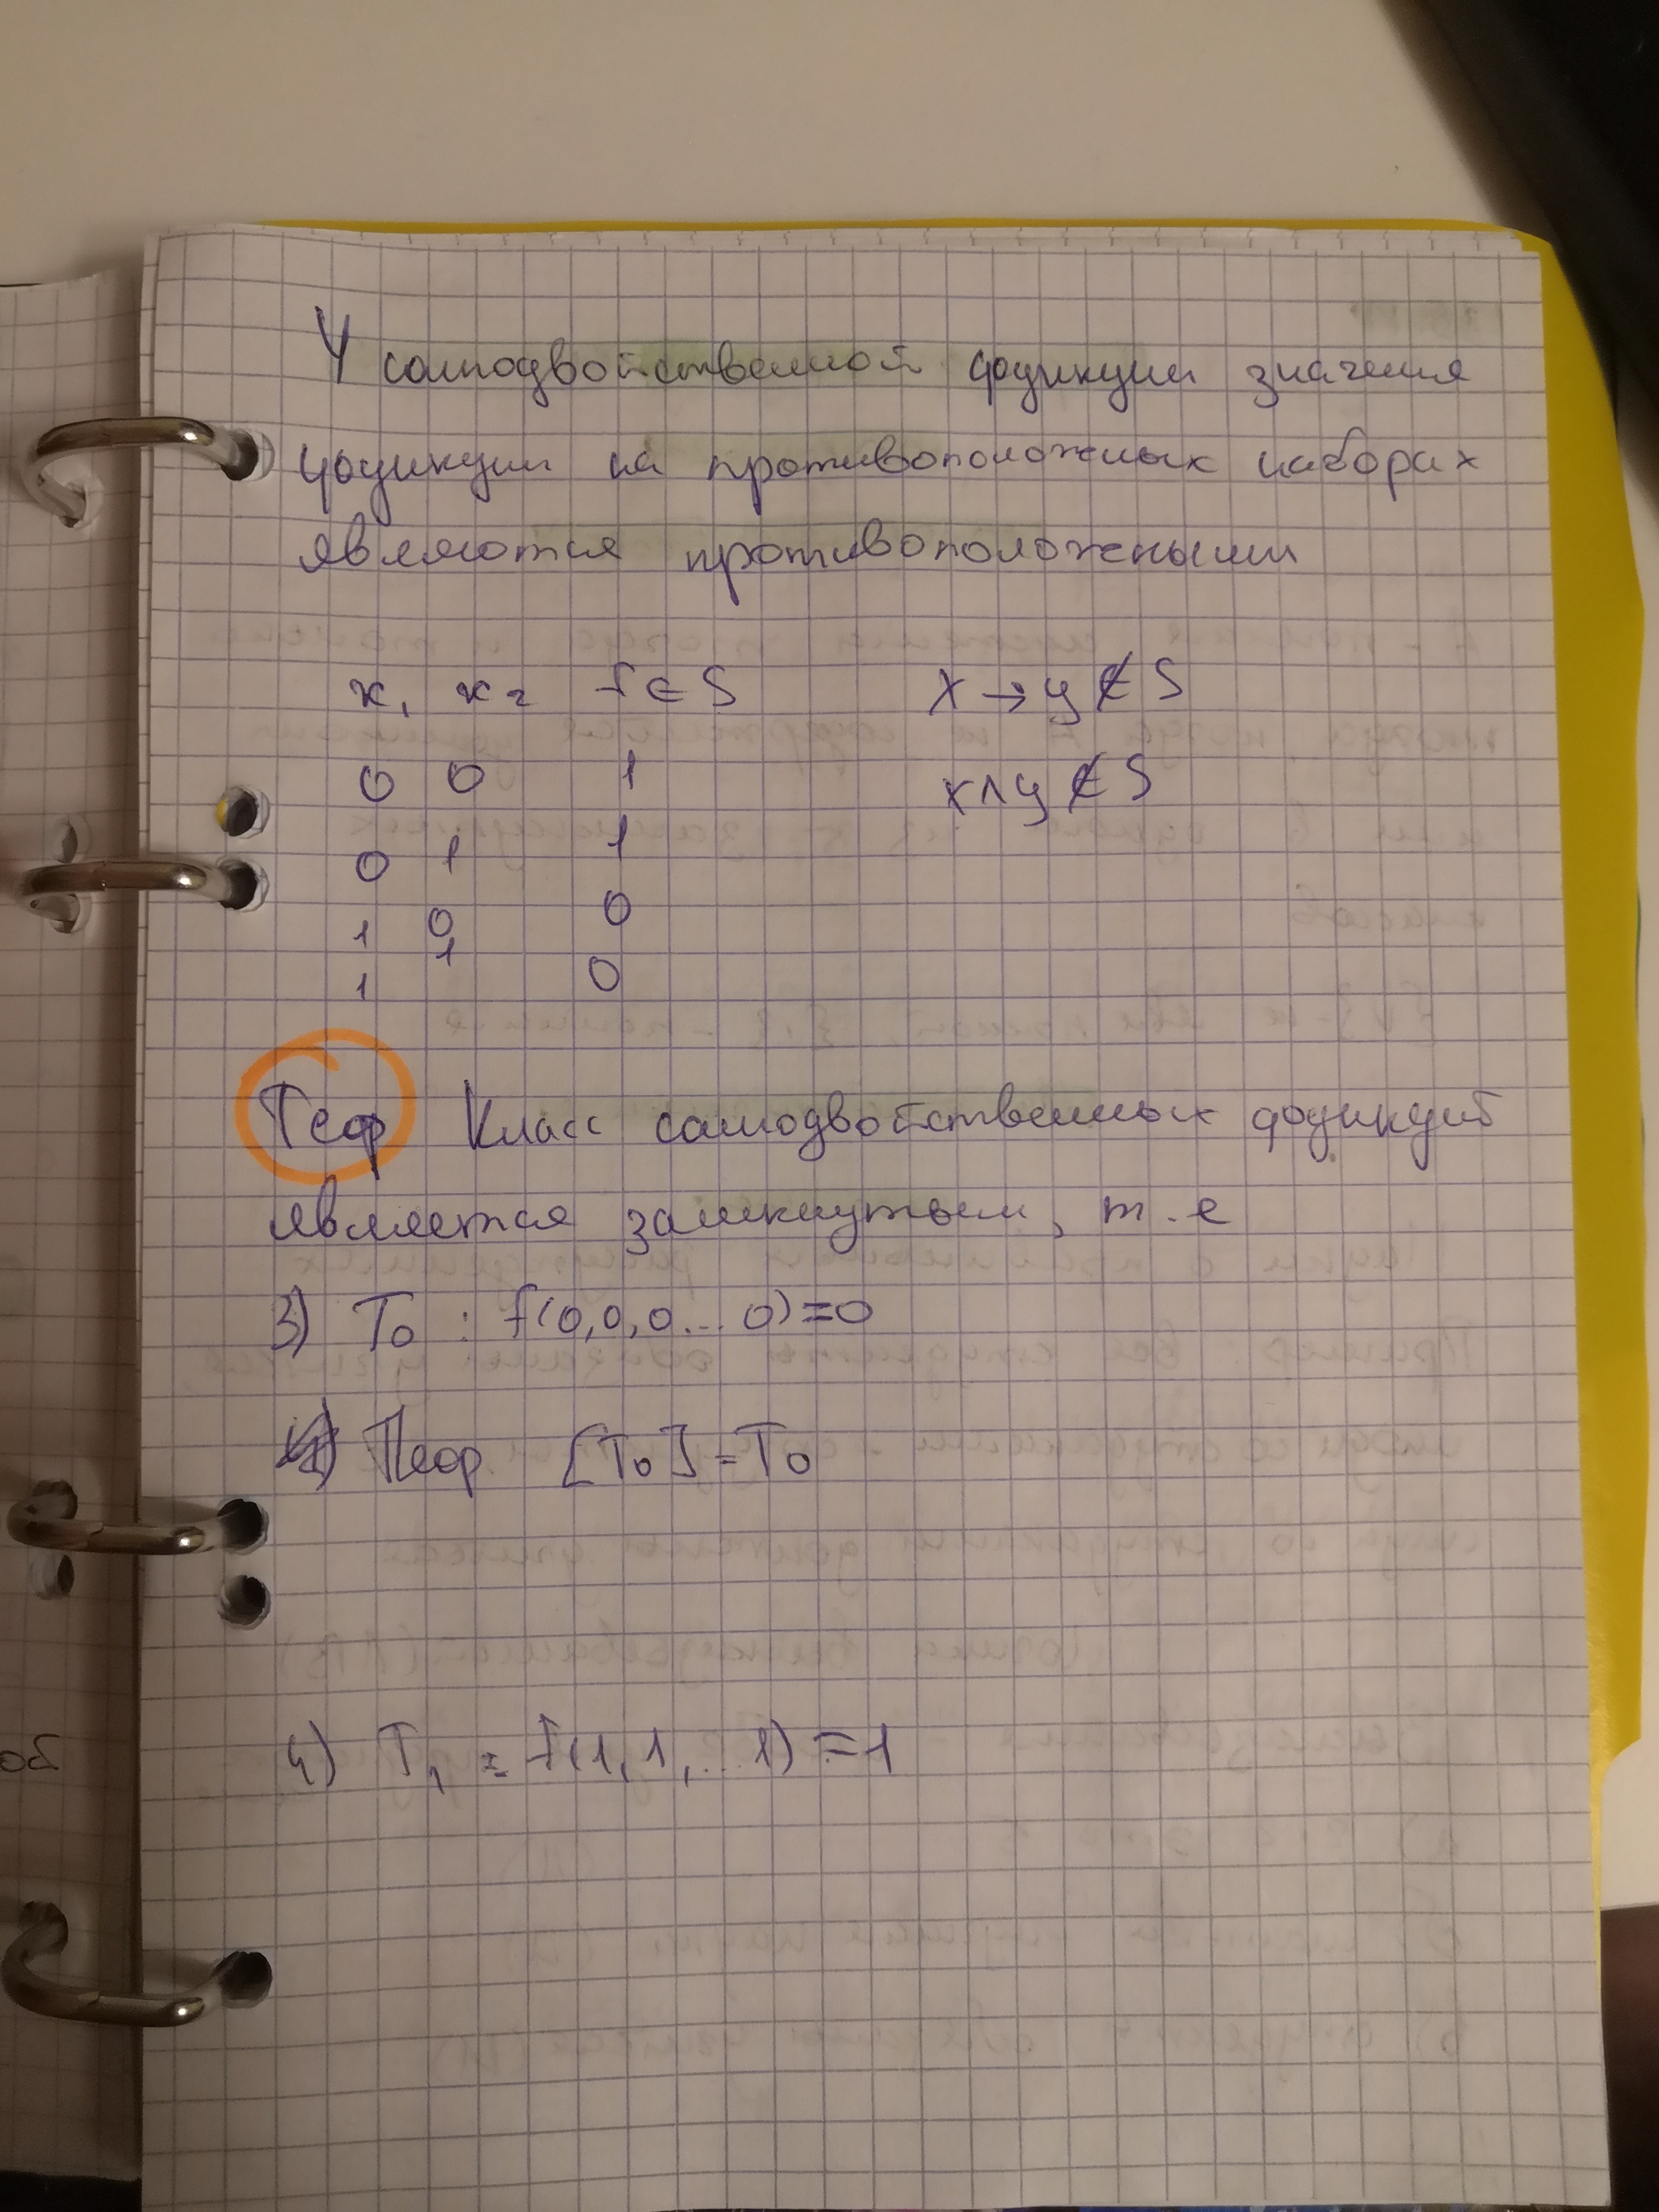 У самодвойственной функции значения
функции на противоположных наборах
являются противоположеными
x₁ x₂ f∈S x→y∉S
0 0 1 x∧y∉S
0 1 1
1 0 0
1 1 0
Теор Класс самодвойственных функций
является замкнутым, т.е
3) T₀ : f(0,0,0...0)=0
Теор [T₀]=T₀
4) T₁ = f(1,1,...1)=1